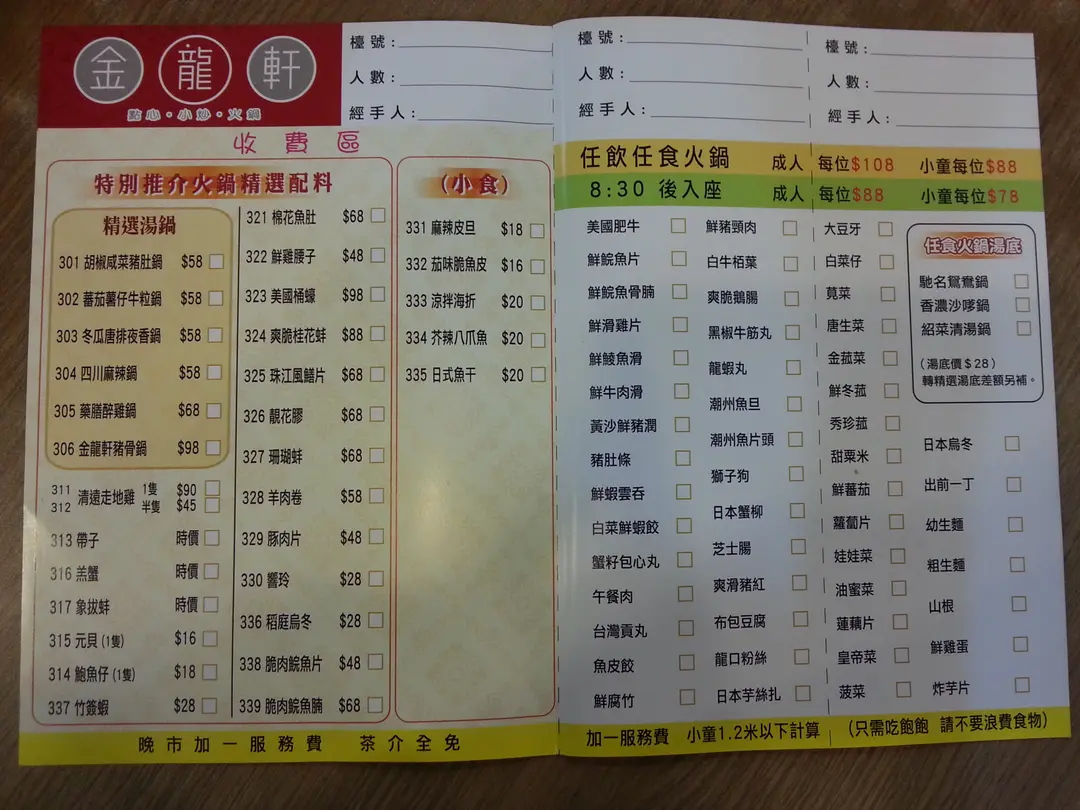 金龍軒
點心·小炒·火鍋
檯號:
人數:
經手人:
檯號:
人數:
經手人:
檯號:
人數:
經手人:
收費區
特別推介火鍋精選配料
精選湯鍋
301 胡椒咸菜豬肚鍋 $58
302 蕃茄薯仔牛粒鍋 $58
303 冬瓜唐排夜香鍋 $58
304 四川麻辣鍋 $58
305 藥膳醉雞鍋 $68
306 金龍軒豬骨鍋 $98
311 清遠走地雞 1隻 $90
312 半隻 $45
313 帶子 時價
316 羔蟹 時價
317 象拔蚌 時價
315 元貝 (1隻) $16
314 鮑魚仔 (1隻) $18
337 竹簽蝦 $28
321 棉花魚肚 $68
322 鮮雞腰子 $48
323 美國桶蠔 $98
324 爽脆桂花蚌 $88
325 珠江風鱔片 $68
326 靚花膠 $68
327 珊瑚蚌 $68
328 羊肉卷 $58
329 豚肉片 $48
330 響玲 $28
336 稻庭烏冬 $28
338 脆肉鯇魚片 $48
339 脆肉鯇魚腩 $68
(小食)
331 麻辣皮旦 $18
332 茄味脆魚皮 $16
333 涼拌海折 $20
334 芥辣八爪魚 $20
335 日式魚干 $20
晚市加一服務費 茶介全免
任飲任食火鍋 成人 每位$108 小童每位$88
8:30 後入座 成人 每位$88 小童每位$78
美國肥牛
鮮鯇魚片
鮮鯇魚骨腩
鮮滑雞片
鮮鯪魚滑
鮮牛肉滑
黃沙鮮豬潤
豬肚條
鮮蝦雲吞
白菜鮮蝦餃
蟹籽包心丸
午餐肉
台灣貢丸
魚皮餃
鮮腐竹
鮮豬頸肉
白牛栢葉
爽脆鵝腸
黑椒牛筋丸
龍蝦丸
潮州魚旦
潮州魚片頭
獅子狗
日本蟹柳
芝士腸
爽滑豬紅
布包豆腐
龍口粉絲
日本芋絲扎
大豆牙
白菜仔
莧菜
唐生菜
金菰菜
鮮冬菰
秀珍菰
甜粟米
鮮蕃茄
蘿蔔片
娃娃菜
油蜜菜
蓮藕片
皇帝菜
菠菜
任食火鍋湯底
馳名鴛鴦鍋
香濃沙嗲鍋
紹菜清湯鍋
(湯底價$28)
轉精選湯底差額另補。
日本烏冬
出前一丁
幼生麵
粗生麵
山根
鮮雞蛋
炸芋片
加一服務費 小童1.2米以下計算 (只需吃飽飽 請不要浪費食物)